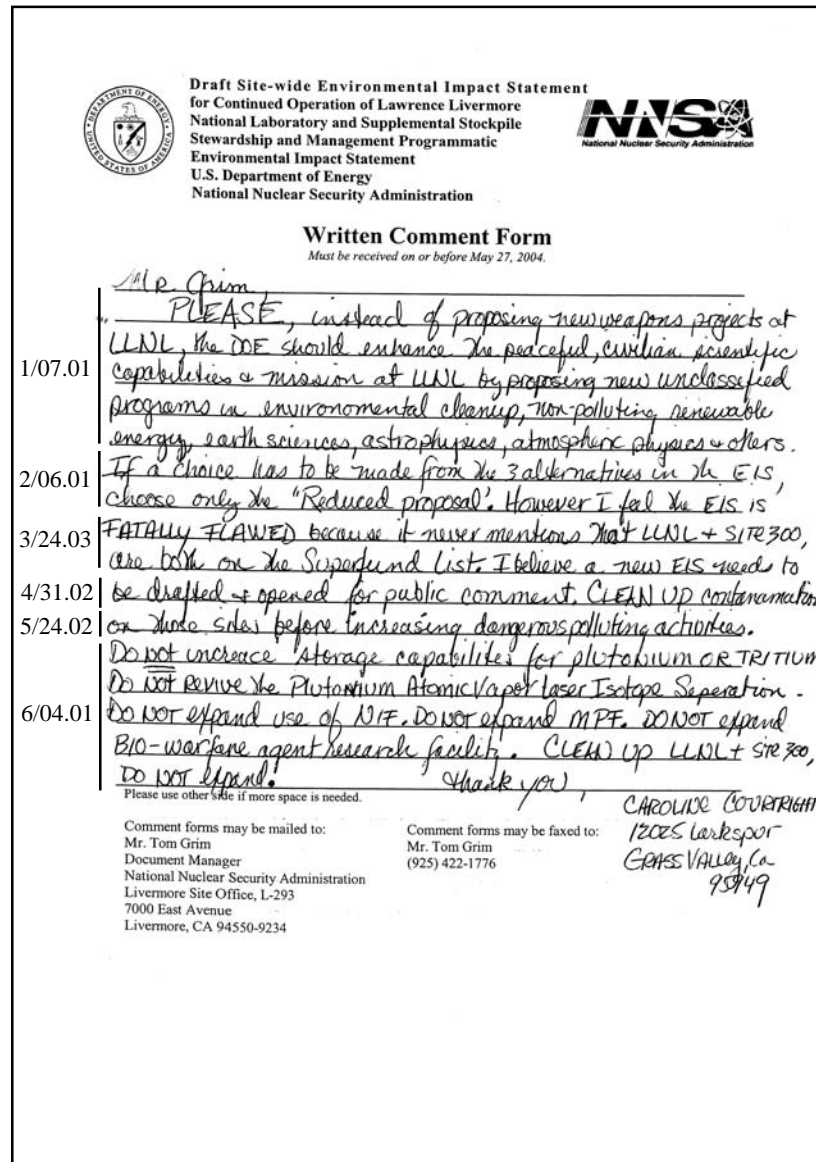 DEPARTMENT OF ENERGY
UNITED STATES OF AMERICA
Draft Site-wide Environmental Impact Statement
for Continued Operation of Lawrence Livermore
National Laboratory and Supplemental Stockpile
Stewardship and Management Programmatic
Environmental Impact Statement
U.S. Department of Energy
National Nuclear Security Administration
NNSA
National Nuclear Security Administration
Written Comment Form
Must be received on or before May 27, 2004.
Mr Grim,
PLEASE, instead of proposing new weapons projects at
1/07.01
LLNL, the DOE should enhance the peaceful, civilian scientific
capabilities & mission at LLNL by proposing new unclassified
programs in environomental cleanup, non-polluting, renewable
energy, earth sciences, astrophysics, atmospheric physics & others.
2/06.01
If a choice has to be made from the 3 alternatives in the EIS,
choose only the "Reduced proposal'. However I feel the EIS is
3/24.03
FATALLY FLAWED because it never mentions that LLNL + SITE 300,
are both on the Superfund List. I believe a new EIS needs to
4/31.02
be drafted & opened for public comment. CLEAN UP contanamation
5/24.02
on those sites before increasing dangerous polluting activities.
DO NOT increace storage capabilites for plutonium OR TRITIUM
DO NOT REVIVE the Plutonium Atomic Vapor Laser Isotope Seperation.
6/04.01
DO NOT expand use of NIF. DO NOT expand MPF. DO NOT expand
BIO-warfare agent research facility. CLEAN UP LLNL + SITE 300,
DO NOT expand! Thank you,
Please use other side if more space is needed.
CAROLINE COURTRIGHT
12025 Larkspur
GRASS VALLEY, Ca
95949
Comment forms may be mailed to:
Mr. Tom Grim
Document Manager
National Nuclear Security Administration
Livermore Site Office, L-293
7000 East Avenue
Livermore, CA 94550-9234
Comment forms may be faxed to:
Mr. Tom Grim
(925) 422-1776